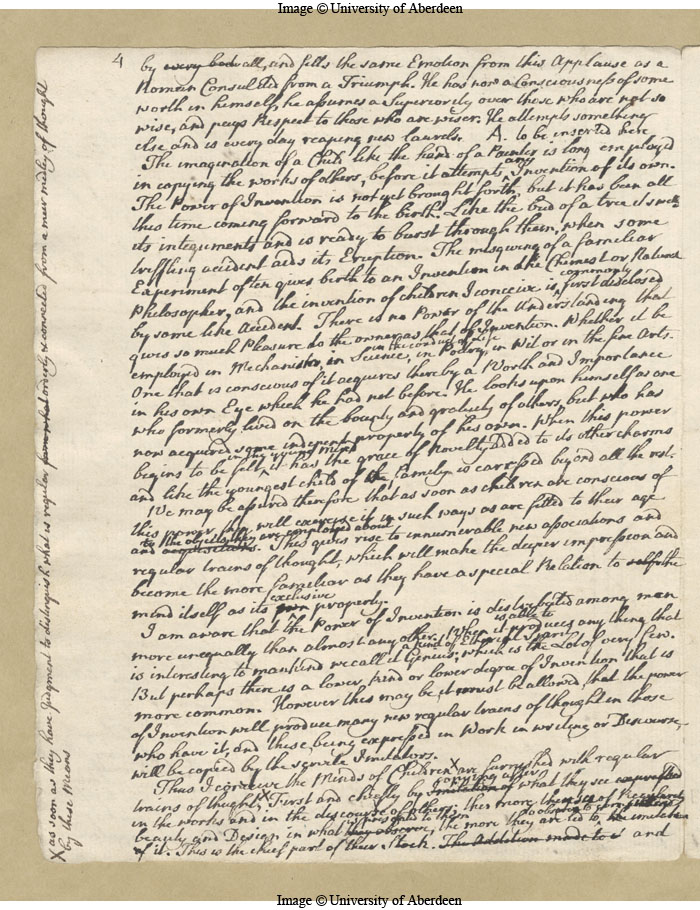 Image © University of Aberdeen
4
by every bod all, and fells the same Emotion from this Applause as a
Roman Consul did from a Triumph. He has now a Consciousness of some
worth in himself, he assumes a Superiority over those who are not so
wise, and pays Respect to those who are wiser. He attempts something
else and is every day reaping new laurels. A. to be inserted here
The imagination of a Child like the hand of a Painter is long employed
in copying the works of others, before it attempts any Invention of its own.
The Power of Invention is not yet brought forth, but it has been all
this time coming forward to the birth. Like the bud of a tree it swells
its integuments and is ready to burst through them, when some
triffling accident aids its Eruption. The misgiving of a familiar
Experiment often gives birth to an Invention in the Chimest or Natural
Philosopher, and the invention of children I conceive is commonly first disclosed
by some like Accident. There is no Power of the Understanding that
gives so much Pleasure to the owner as that of Invention. Whether it be
employed in Mechanisms, in Science, in the conduct of life in Poetry, in Wit or in the fine Arts.
One that is conscious of it acquires thereby a Worth and Importance
in his own Eye which he had not before. He looks upon himself as one
who formerly lived on the bounty and gratuity of others, but who has
now acquired some independent property of his own. When this power
begins to be felt in the young mind it has the grace of Novelty added to its other charms
and like the youngest child of the Family is caressed beyond all the rest.
We may be assured therefore that as soon as children are conscious of
this power they will exercise it in such ways as are fitted to their age
and to the objects they are employed about. This gives rise to innumerable new associations and
regular trains of thought, which will make the deeper impression and
become the more familiar as they have a special Relation to the
mind itself as its exclusive property.
I am aware that the Power of Invention is distributed among men
more unequally than almost any other. When it is able to produces any thing that
is interesting to mankind we call it Genius, a kind of Etherial Spark which is the Lot of very few.
But perhaps there is a lower kind or lower degree of Invention that is
more common. However this may be, it must be allowed that the power
of Invention will produce many new regular trains of thought in those
who have it, and these being expressed in Work in writing or Discourse,
will be copied by the servile Imitators.
Thus I conceive the Minds of Children X are furnished with regular
trains of thought X First and chiefly by copying after what they see
in the works and in the discourse of others; the more
beauty and Design in what is presented to them, the more they are led to
of it. This is the chief part of their Stock. The Addition made to it and
X as soon as they have Judgment to distinguish what is regular from what orderly & connected from a meer medley of thought
by these Means
Image © University of Aberdeen